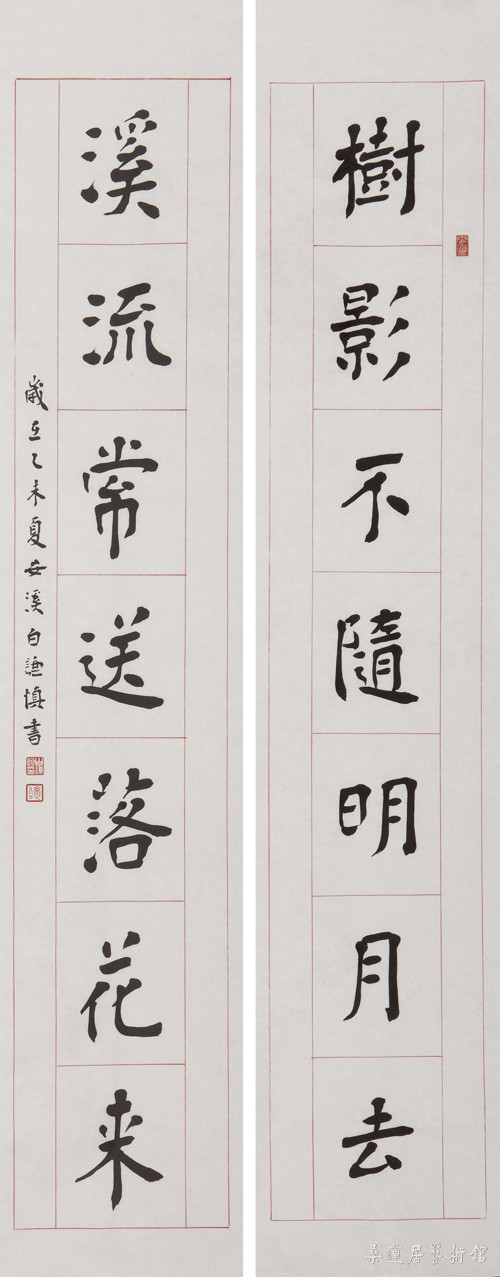 樹影不隨明月去
溪流常送落花来
歲在乙未夏安溪白謙慎書
桑蓮居藝術館